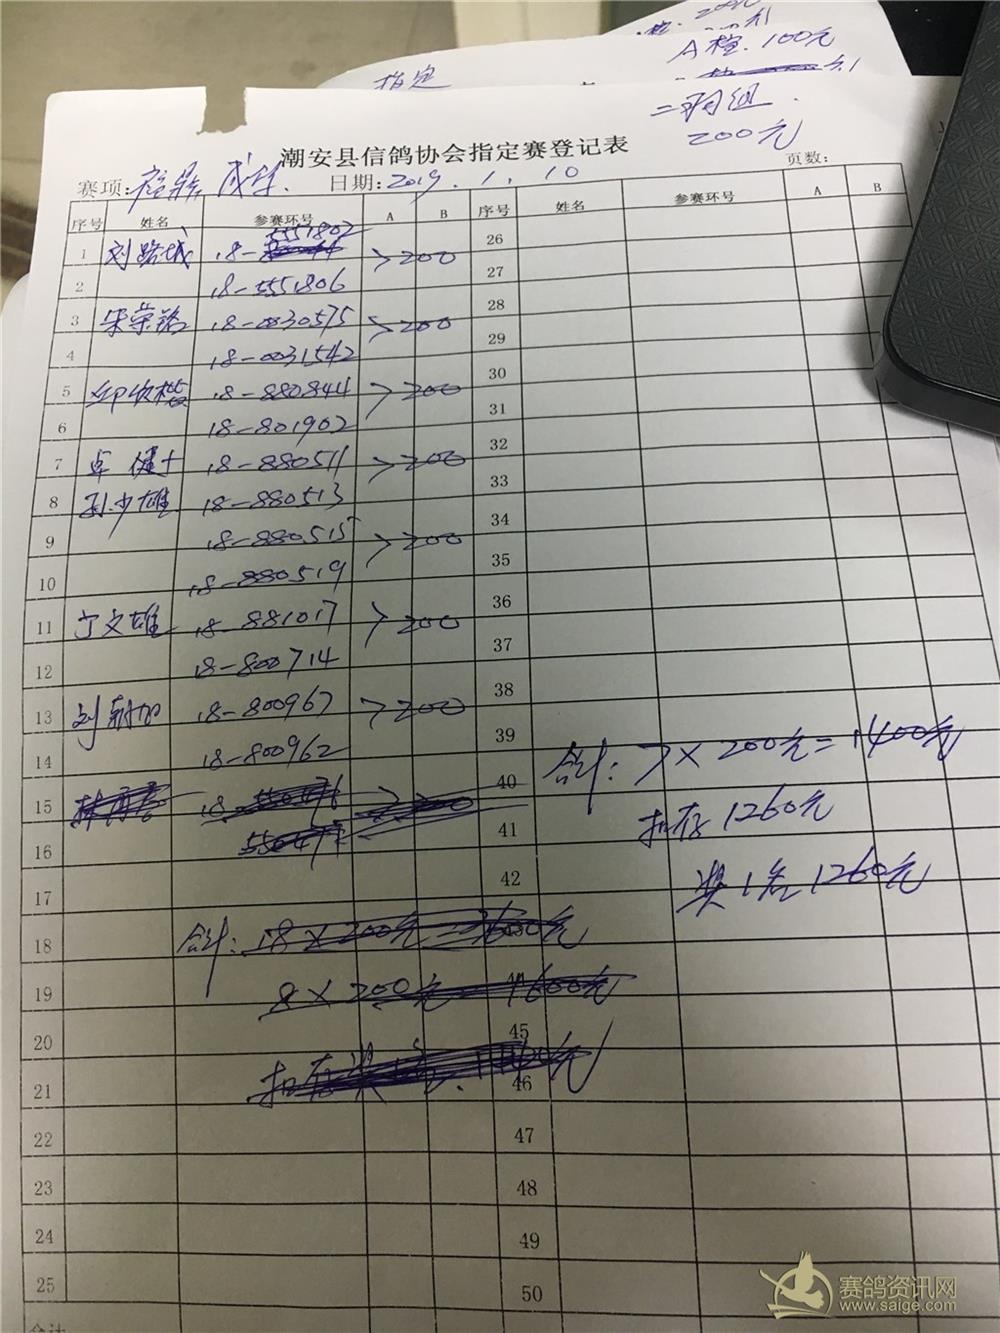 A档.100元
指定
二羽组.
200元
潮安县信鸽协会指定赛登记表
赛项:福鼎 成绩. 日期:2019.1.10 页数:
序号 姓名 参赛环号 A B 序号 姓名 参赛环号 A B
1 刘路城 18-5551802 >200 26
2 18-5551806 27
3 宋荣铭 18-0030575 >200 28
4 18-0031542 29
5 18-880844 >200 30
6 18-801902 31
7 卓健士 18-880511 >200 32
8 孙少雄 18-880513 33
9 18-880515 >200 34
10 18-880519 35
11 宁文雄 18-881017 >200 36
12 18-800714 37
13 刘朝加 18-800967 >200 38
14 18-800962 39
合计: 7×200元=1400元
15 18- 40
扣存1260元
16 41
17 42
奖1名1260元
18 合计: 18×200元=3600元
19 8×200元=1600元
20 45
21 扣存奖1名 46
22 47
23 48
24 49
25 50
合计
赛鸽资讯网
www.saige.com